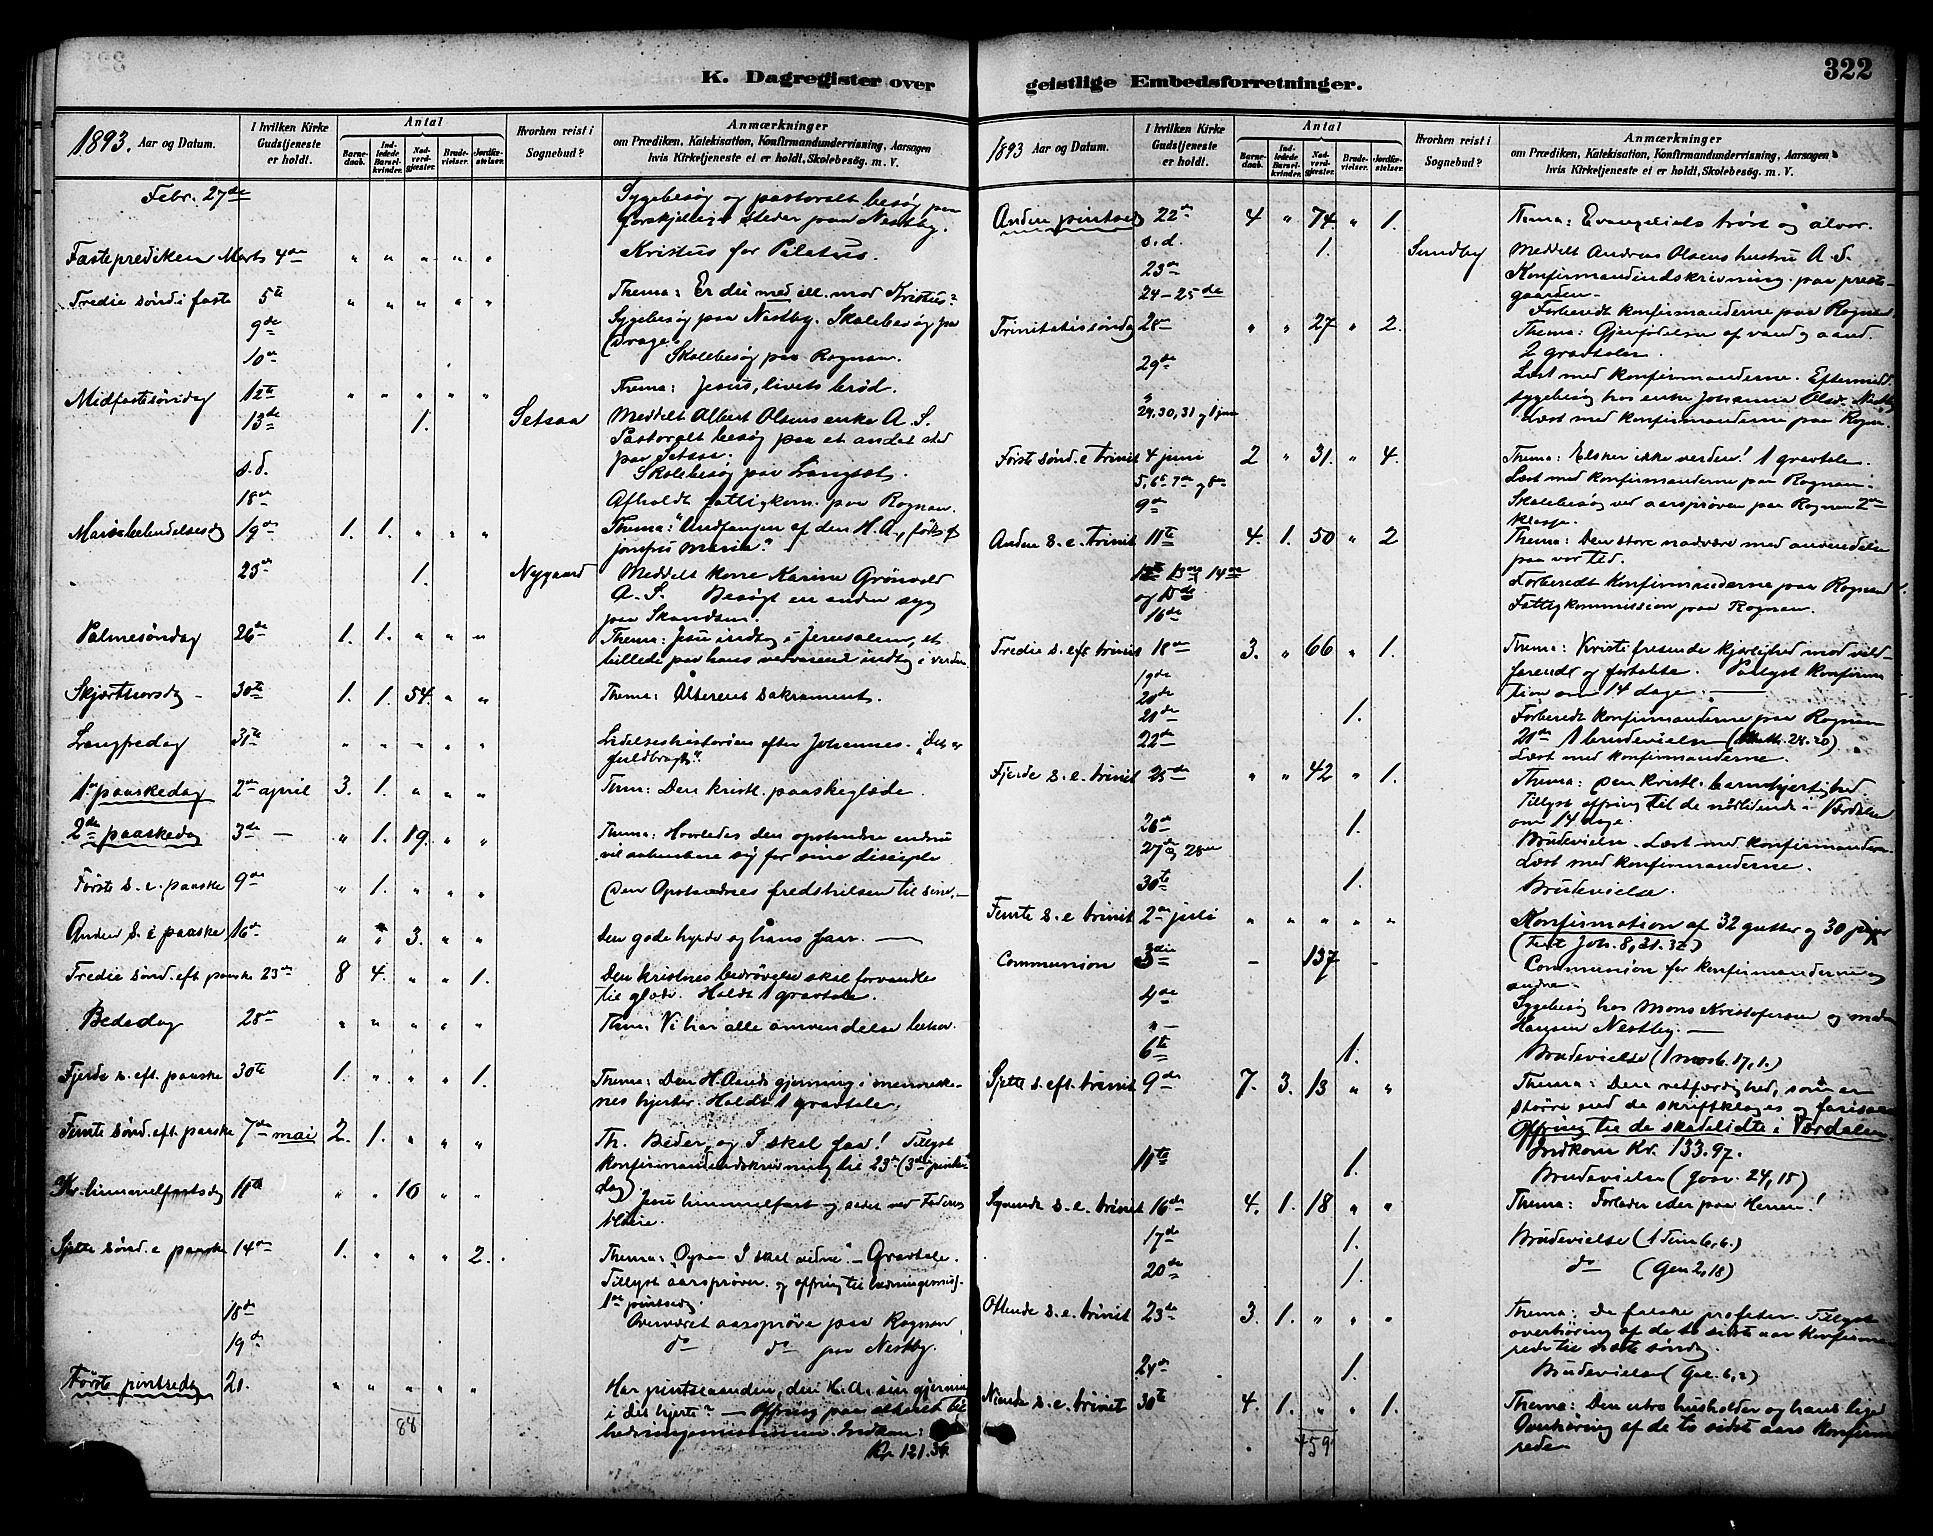 K. Dagregister over
1893. Aar og Datum.
I hvilken Kirke Gudstjeneste er holdt.
Antal
Barnedaab.
Indledede Barselkvinder.
Nadverdgjæster.
Brudevielser.
Jordfæstelser.
Hvorhen reist i Sognebud?
Anmærkninger
om Prædiken, Katekisation, Konfirmandundervisning, Aarsagen
hvis Kirketjeneste ei er holdt, Skolebesøg. m. V.
Febr. 27de Sygebesøg og pastoralt besøg paa
forskjellige steder paa Nestby.
Fasteprediken Marts 4de " " " " " Kristus for Pilatus.
Tredie sønd. i faste 5te " " " " " Thema: Er du med ell. mod Kristus?
9de Sygebesøg paa Nestby. Skolebesøg pa
Drage.
10de Skolebesøg paa Rognan.
Midfastesøndag 12te " " " " " Thema: Jesus, livets brød.
13de 1. Setsaa Meddelt Albert Olsens enke A. S.
Pastoralt besøg paa et andet sted
paa Setsaa.
s.d. Skolebesøg paa Langset.
18de Afholdt fattigkom. paa Rognan.
Mariæ bebudelsesdag 19de 1. 1. " " " Thema: "Undfangen af den H. A., født af
jomfru Maria."
23de 1. Nygaard Meddelt kone Karine Grönvold
A. S. Besøgt en anden syg
paa Skandsen.
Palmesöndag 26de 1. 1. " " " Thema: Jesu indtog i Jerusalem, et
billede paa hans vedvarende indtog i verden
Skjærthorsdag – 30te 1. 1. 54. " " Thema: Alterens sakrament.
Langfredag 31te " " " " " Lidelseshistorien efter Johannes. "Det er
fuldbragt".
1ste paaskedag 2den april 3. 1. " " " Tem: Den kristl. paaskeglæde.
2de paaskedag 3de – " 1. 19. " " Thema: Hvorledes den opstandne endnu
vil aabenbare sig for sine disciple
Förste s. e. paaske 9de " 1. " " " Den Opstandnes fredshilsen til sine. –
Anden s. e. paaske 16de " " 3. " " Den gode hyrde og hans faar. –
Tredie sønd. eft. paaske 23de 8 4. " " 1. Den kristnes bedrøvelse skal forvandles
til glæde. Holdt 1 gravtale.
Bededag 28de " " " " " Them: Vi har alle omvendelse behov.
Fjerde s. eft. paaske 30te 1. " " " 1. Thema: Den H. Aands gjerning i menneske-
nes hjerter. Holdt 1 gravtale.
Femte sønd. eft. paaske 7de mai 2. 1. " " " Th. Beder, og I skal faa! Tillyst
konfirmandindskrivning til 23de (3die pinse-
dag)
Kr. himmelfartsdag 11te " " 10 " " Jesu himmelfart og sæde ved Faderens
høire.
Sjette sønd. e paaske 14de 1. " " " 2. Thema: "Ogsaa I skal vidne". – Gravtale.
Tillyst aarsprøver og offring til hedningemiss.
1ste pintsedag.
18de Overværet aarsprøve paa Rognan.
19de do do paa Nestby.
Første pintsedag 21. " " " " " Har pintseaanden, den H. A. sin gjerning
i dit hjerte? – Offring paa alteret til
hedningemissionen. Indkom:
88 Kr. 121.36.
geistlige Embedsforretninger.
322
1893 Aar og Datum.
I hvilken Kirke Gudstjeneste er holdt.
Antal
Barnedaab.
Indledede Barselkvinder.
Nadverdgjæster.
Brudevielser.
Jordfæstelser.
Hvorhen reist i Sognebud?
Anmærkninger
om Prædiken, Katekisation, Konfirmandundervisning, Aarsagen
hvis Kirketjeneste ei er holdt, Skolebesøg. m. V.
Anden pintsedag 22de 4 " 74. " 1. Thema: Evangeliets trøst og alvor.
s.d. 1. Sundby Meddelt Andreas Olsens hustru A. S.
23de Konfirmandindskrivning paa preste-
gaarden.
24–25de Forberedt konfirmanderne paa Rognan.
Trinitatissøndag 28de " " 27 " 2. Thema: Gjenfødelsen af vand og aand.
2 gravtaler.
29de Læst med konfirmanderne. Eftermidd.
sygebesøg hos enke Johanna Olsd. Nestby
29, 30, 31 og 1 juni Læst med konfirmanderne paa Rognan.
Første sønd. e trinit 4 juni 2 " 31. " 4. Thema: Elsker ikke verden! 1 gravtale.
5, 6te 7de og 8de Læst med konfirmanderne paa Rognan.
9de Skolebesøg ved aarsprøven paa Rognan 2den
klasse.
Anden s. e. trinit 11te 4. 1. 50 " 2 Thema: Den store nadvere med anvendelse
paa vor tid.
12te 13de 14de
og 15de Forberedt konfirmanderne paa Rognan
16de Fattigkommission paa Rognan.
Tredie s. eft trinit 18de 3. " 66 " 1. Thema: Kristi frelsende kjærlighed mod vild-
farende og fortabte. Tillyst konfirma-
tion om 14 dage. –
19de
20de
21de 1. Forberedt konfirmanderne paa Rognan
22de 21de 1 brudevielse (Matth. 28. 20)
Læst med konfirmanderne.
Fjerde s. e. trinit 25de " " 42 " 1. Thema: Den kristl. barmhjertighed.
Tillyst offring til de nødlidende i Værdalen
om 14 dage.
26de 1. Brudevielse. Læst med konfirmandern.
27de og 28de Læst med konfirmanderne.
30te 1. Brudevielse.
Femte s. e trinit 2den juli " " " " " Konfirmation af 32 gutter og 30 piger
(Text Joh. 8, 31. 32)
Communion 3die – 137 – Communion for konfirmanderne og
andre.
4de Sygebesøg hos Mons Kristofersen og
" – Hansen Nestby. –
6te 1. Brudevielse (1 moseb. 17, 1.)
Sjette s. eft. trinit 9de 7. 3. 13 " " Thema: Den retfærdighed, som er
større end de skriftkloges og farisæer
Offring til de skadelidte i Værdalen
Indkom Kr. 133.97.
11te 1. Brudevielse (Josv. 24, 15)
Syvende s. e. trinit 16de 4. 1. 18 " " Thema: Forlader eder paa Herren!
17de 1. Brudevielse (1 Tim 6, 6.)
20de 1. do (Gen 2, 18)
Ottende s. e. trinit 23de 3. 1. " " " Thema: De falske profeter. Tillyst
overhøring af de to sidste aar konfirme-
rede til næste søndag.
24de 1. Brudevielse (Gal. 6, 2)
Niende s. e. trinit 30te 4. 1. " " 1. Thema: Den utro husholder og hans
Overhøring af de to sidst aars konfirme-
459 rede